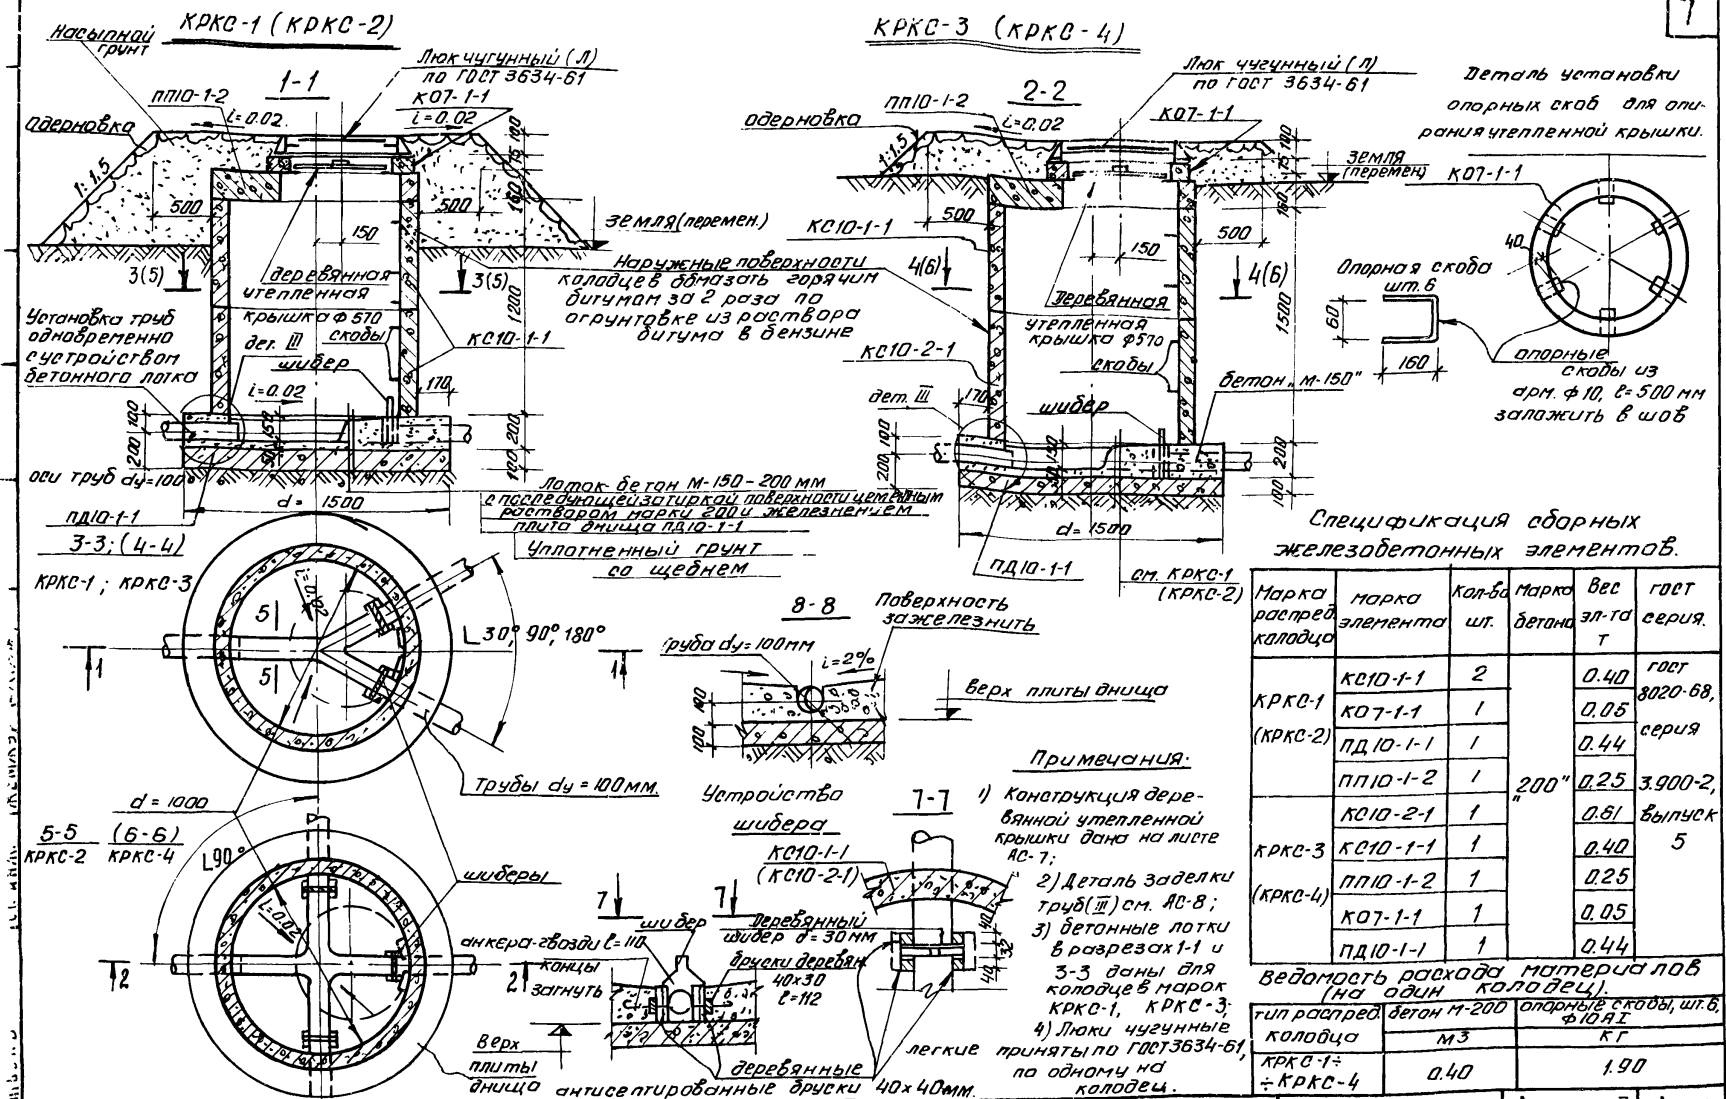 7
КРКС-1 (КРКС-2)
Насыпной
грунт
1-1
Люк чугунный (Л)
по ГОСТ 3634-61
ПП10-1-2
i=0.02
К07-1-1
i=0.02
одерновка
1:1.5
100
75
160
500
500
150
земля (перемен.)
3(5)
3(5)
деревянная
утепленная
крышка ф 570
1200
Установка труб
одновременно
с устройством
бетонного лотка
дет. III
скобы
шибер
КС10-1-1
i=0.02
170
100
200
150
50
200
100
оси труб dy=100
d= 1500
ПД10-1-1
Наружные поверхности
колодцев обмазать горячим
битумом за 2 раза по
огрунтовке из раствора
битума в бензине
Лоток-бетон М-150-200 мм
с последующей затиркой поверхности цементным
раствором марки 200 и железнением
плита днища ПД10-1-1
Уплотненный грунт
со щебнем
КРКС-3 (КРКС-4)
2-2
Люк чугунный (Л)
по ГОСТ 3634-61
ПП10-1-2
i=0.02
К07-1-1
одерновка
1:1.5
100
75
160
земля
(перемен)
500
500
150
КС10-1-1
4(6)
4(6)
Деревянная
утепленная
крышка ф570
1500
КС10-2-1
скобы
бетон „М-150"
дет. III
170
шибер
100
200
150
50
200
100
d= 1500
ПД10-1-1
см. КРКС-1
(КРКС-2)
Деталь установки
опорных скоб для опи-
рания утепленной крышки.
К07-1-1
40
Опорная скоба
шт. 6
60
160
опорные
скобы из
арм. ф 10, ℓ=500 мм
заложить в шов
3-3; (4-4)
КРКС-1 ; КРКС-3
i=0.02
5
5
1
1
∟30°, 90°, 180°
Трубы dy = 100 мм.
d = 1000
5-5 (6-6)
КРКС-2 КРКС-4
∟90°
i=0.02
шиберы
2
2
8-8
Поверхность
зажелезнить
Труба dy=100мм
i=2%
100
100
верх плиты днища
Устройство
шибера
7-7
КС10-1-1
(КС10-2-1)
7
7
шибер
Деревянный
шибер δ=30 мм
анкера-гвозди ℓ=110
концы
загнуть
бруски деревян.
40х30
ℓ=112
40
32
40
Верх
плиты
днища
деревянные
антисептированные бруски 40х40мм.
Примечания:
1) Конструкция дере-
вянной утепленной
крышки дана на листе
АС-7;
2) Деталь заделки
труб (III) см. АС-8;
3) бетонные лотки
в разрезах 1-1 и
3-3 даны для
колодцев марок
КРКС-1, КРКС-3;
4) Люки чугунные
легкие приняты по ГОСТ 3634-61,
по одному на
колодец.
Спецификация сборных
железобетонных элементов.
Марка распред. колодца | марка элемента | Кол-во шт. | Марка бетона | Вес эл-та т | гост серия.
КРКС-1 (КРКС-2) | КС10-1-1 | 2 | „200" | 0.40 | гост 8020-68, серия 3.900-2, выпуск 5
К07-1-1 | 1 | 0.05
ПД10-1-1 | 1 | 0.44
ПП10-1-2 | 1 | 0.25
КРКС-3 (КРКС-4) | КС10-2-1 | 1 | 0.61
КС10-1-1 | 1 | 0.40
ПП10-1-2 | 1 | 0.25
К07-1-1 | 1 | 0.05
ПД10-1-1 | 1 | 0.44
Ведомость расхода материалов
(на один колодец).
тип распред. колодца | бетон М-200 м3 | опорные скобы, шт.6, ф10АI кг
КРКС-1÷ ÷КРКС-4 | 0.40 | 1.90